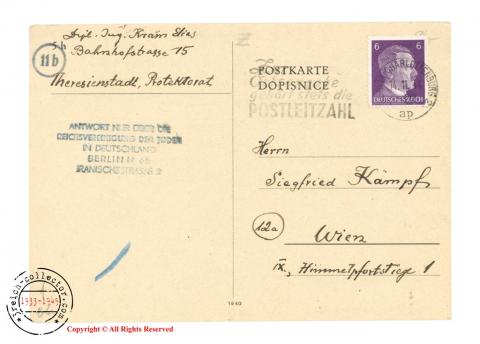 Dipl. Ing. Kram Elias
5h Bahnhofstrasse 15
11b
Theresienstadt, Protektorat
ANTWORT NUR ÜBER DIE
REICHSVEREINIGUNG DER JUDEN
IN DEUTSCHLAND
BERLIN N 65
IRANISCHESTRASSE 2
POSTKARTE
DOPISNICE
gehört stets die
POSTLEITZAHL
6 6
DEUTSCHES REICH
CHARLOTTENBURG
ap
Herrn
Siegfried Kämpf
12a
Wien
IX., Himmelpfortstiege 1
1940
3reich-collector.com
1933-1945
Copyright © All Rights Reserved